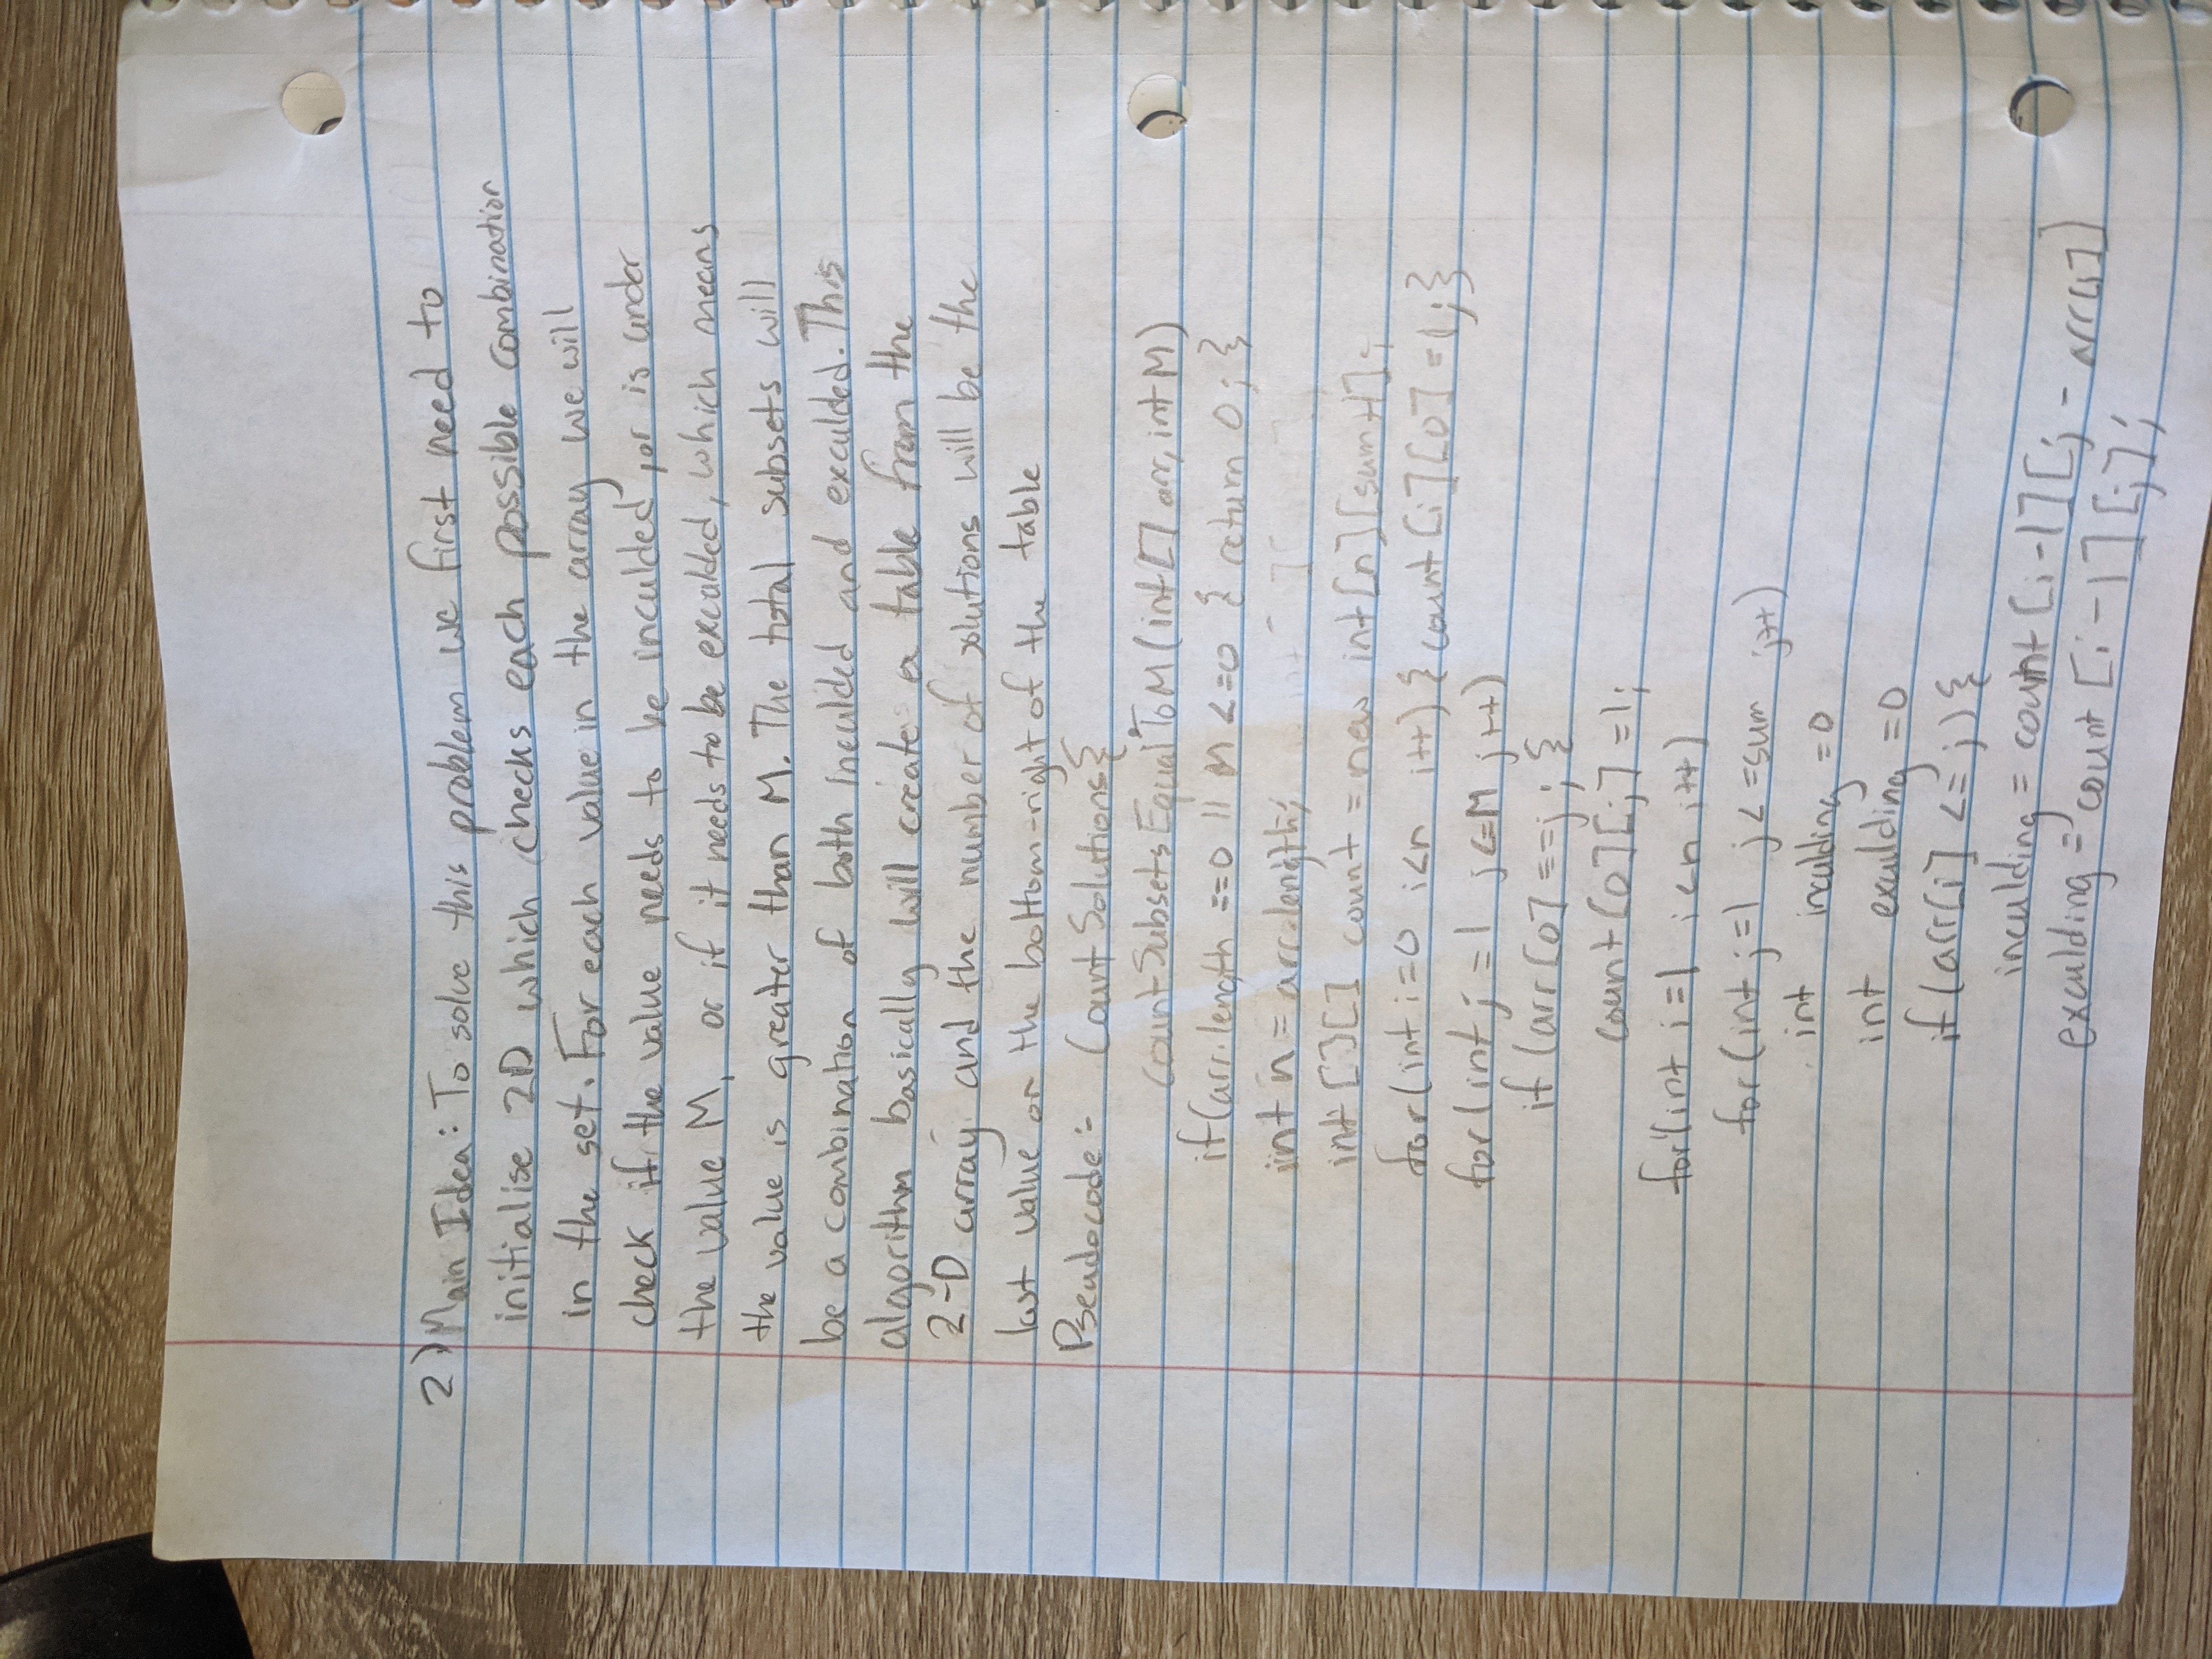 2) Main Idea: To solve this problem we first need to
initialise 2D which checks each possible combination
in the set. For each value in the array we will
check if the value needs to be inculded, or is under
the value M, or if it needs to be exculded, which means
the value is greater than M. The total subsets will
be a combination of both inculded and exculded. This
algorithm basically will create a table from the
2-D array and the number of solutions will be the
last value or the bottom-right of the table
Pseudocode:- Count Solutions{
countSubsetsEqualToM(int[] arr, int M)
if(arr.length ==0 || M <=0 { return 0; }
int n = arr.length;
int [][] count = new int[n][sum+1];
for(int i=0 i<n i++) { count [i][0] =1;}
for(int j =1 j<=M j++)
if (arr[0] ==j ; {
count[0][j] =1;
for(int i=1 i<n i++)
for(int j=1 j<=sum j++)
int inculding =0
int exculding =0
if (arr[i] <= j) {
inculding = count [i-1][j - arr[i])
exculding = count [i-1][j];